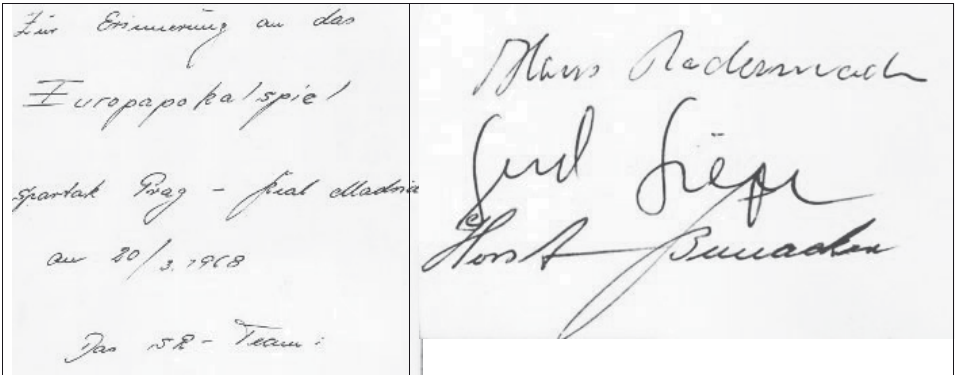 Zur Erinnerung an das
Europapokalspiel
Spartak Prag - Real Madrid
am 20/3.1968
Das SR-Team:
Hans Radermach
Gerd
Horst